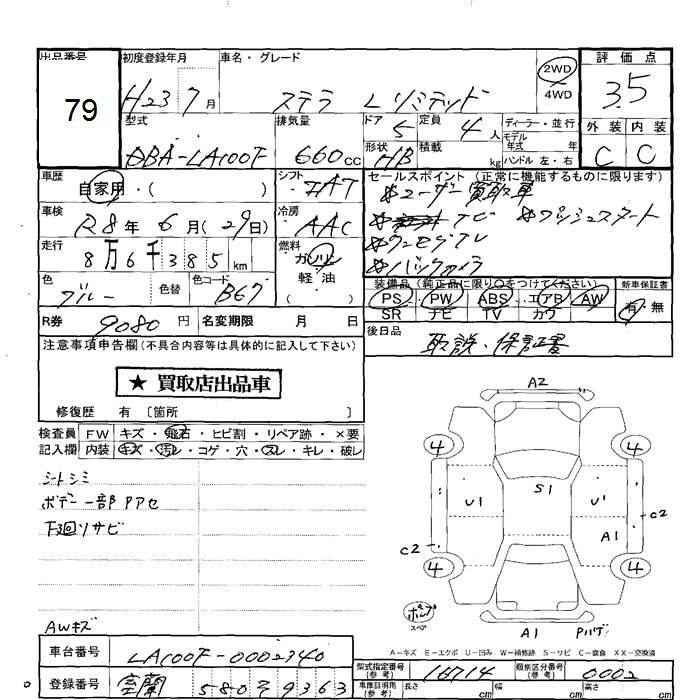 出品番号 初度登録年月 車名・グレード 2WD 4WD 評価点
79 H23 7月 ステラ Lリミテッド 3.5
型式 排気量 ドア 定員 ディーラー・並行 外装 内装
DBA-LA100F 660cc 5 4人 モデル年式 年 C C
形状 HB 積載 kg ハンドル 左・右
車歴 自家用・( ) シフト IAT セールスポイント (正常に機能するものに限ります)
☆ユーザー買取車
車検 R8年 6月(29日) 冷房 AAC
ナビ ☆プッシュスタート
☆ワンセグTV
走行 8万6千385km 燃料 ガソリン 軽油
☆バックカメラ
色 ブルー 色替 色コード B67
装備品(純正品に限り○をつけてください) 新車保証書
PS PW ABS エアB AW 有・無
SR ナビ TV カワ
R券 9080円 名変期限 月 日
後日品 取説・保証書
注意事項申告欄(不具合内容等は具体的に記入して下さい)
★ 買取店出品車
修復歴 有 〔箇所 〕
検査員 FW キズ・飛石・ヒビ割・リペア跡・×要
記入欄 内装 キズ・汚レ・コゲ・穴・スレ・キレ・破レ
シートシミ
ボデー一部Pアセ
下廻リサビ
AWキズ
A2
4 4
U1 S1 U1
A1 C2
C2
4 4
ポンプ
スペア
A1 Pハゲ
A-キズ E-エクボ U-凹み W-補修跡 S-サビ C-腐食 XX-交換済
車台番号 LA100F-0002340
型式指定番号(参考) 16714 類別区分番号(参考) 0002
登録番号 室蘭 580 ラ 9363
車庫証明用(参考) 長さ cm 幅 cm 高さ cm